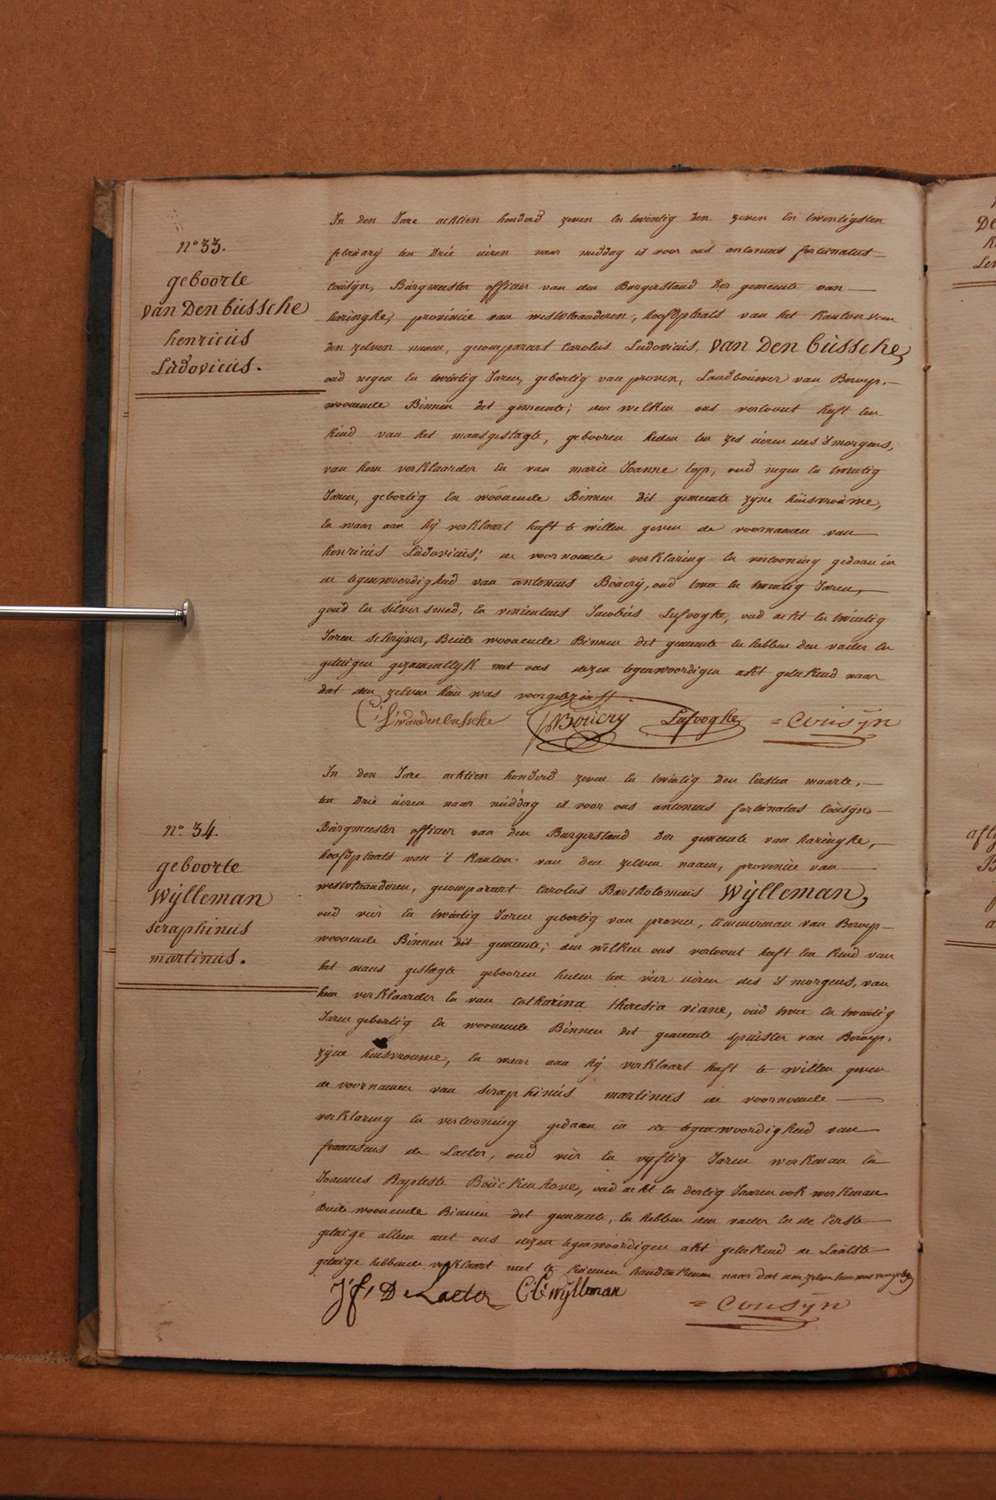 n° 33.
geboorte
van Den bussche
henricus
Ludovicus.
In den Jare achtien honderd zeven en twintig den zeven en twintigsten
february ten drie uren naer middag is voor ons antonius fortunatus
Cousijn, Burgmeester officier van den Burgerstand der gemeente van
haringhe, provincie van westvlaanderen, hoofdplaats van het Kanton van
den zelven naam, gecompareert Carolus Ludovicus, van Den bussche,
oud negen en twintig Jaren, gebortig van proven, Landbouwer van Beroep,
woonende Binnen dit gemeente; den welken ons vertoont heeft een
kind van het mansgeslagte, gebooren heden ten zes uren des s'morgens,
van hem verklaarder en van marie Joanne Cop, oud negen en twintig
Jaren, gebortig en woonende Binnen dit gemeente zyne huisvrouwe,
en waer aan hij verklaart heeft te willen geven de voornamen van
henricus Ludovicus; de voornoemde verklaring en vertooning gedaan in
de tegenwoordigheid van antonius Bouery, oud twee en twintig Jaren,
goud en silversmed, en Jacobus Lufooghe, oud acht en twintig
Jaren schryver, Beide woonende Binnen dit gemeente en hebben den vader en
getuigen gezamentlyk met ons dezen tegenwoordigen akt geteekend naer
dat den zelven hun was voorgelezen
vandenbussche Bouery Lufooghe = Cousÿn
n° 34.
geboorte
Wÿlleman
seraphinus
martinus.
In den Jare achtien honderd zeven en twintig den Eersten maarte,
ten drie uren naer middag is voor ons antonius fortunatus Cousÿn
Burgmeester officier van den Burgerstand der gemeente van haringhe,
hoofdplaats van 't Kanton van den zelven naam, provincie van
westvlaanderen, gecompareert Carolus Bartholomeus Wÿlleman,
oud vier en twintig Jaren gebortig van proven, timmerman van Beroep
woonende Binnen dit gemeente; den welken ons vertoont heeft een kind van
het mans geslagte gebooren heden ten vier uren des s'morgens, van
hem verklaarder en van Catharina theresia viane, oud twee en twintig
Jaren gebortig en woonende Binnen dit gemeente spinster van Beroep,
zijne huisvrouwe, en waer aan hij verklaart heeft te willen geven
de voornamen van seraphinus martinus de voornoemde
verklaring en vertooning gedaan in de tegenwoordigheid van
franciscus de Laeter, oud vier en vyftig Jaren werkman en
Joannes Baptiste Bouckenhove, oud acht en dertig Jaaren ook werkman
Beide woonende Binnen dit gemeente, en hebben den vader en de Eerste
getuige alleen met ons dezen tegenwoordigen akt geteekend de Laatste
getuige hebbende verklaart niet te kunnen handteekenen naer dat den zelven hun was voorgelezen
J f, D e Laeter C B wÿlleman
= Cousÿn